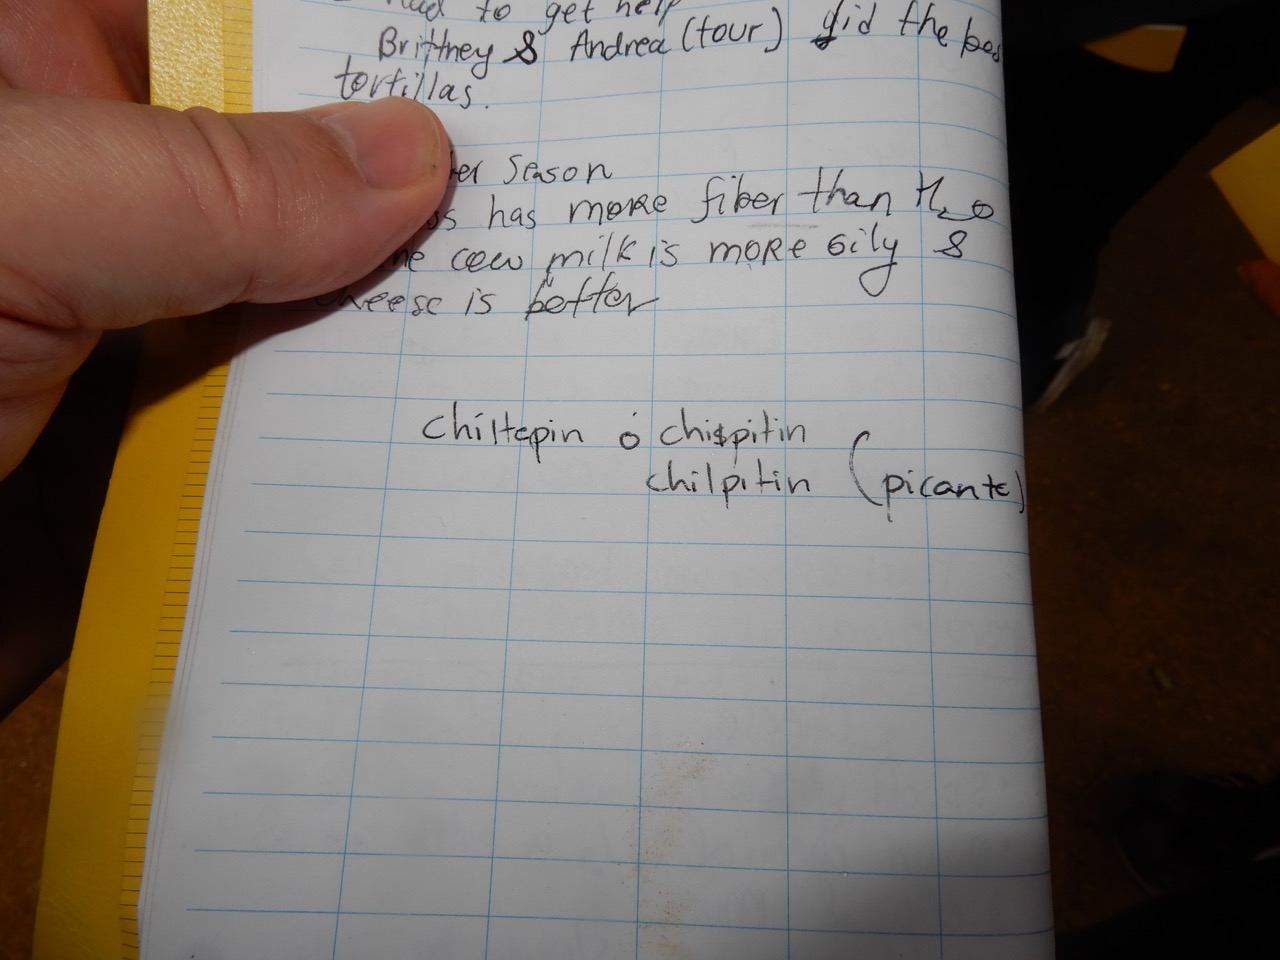 had to get help
Brittney & Andrea (tour) did the bes
tortillas.
ter season
ss has more fiber than H2O
the cow milk is more oily &
cheese is better
chiltepin ó chispitin
chilpitin (picante)